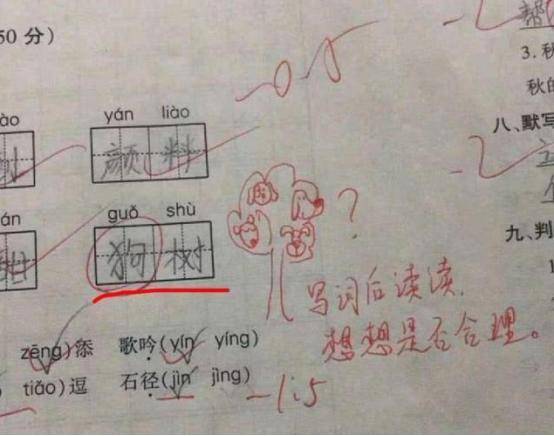 50 分)
-0.5
ào yán liào
颜 料
án guǒ shù
狗 树
?
写词后读读,
想想是否合理。
zēng)添 歌吟(yín yíng)
tiǎo)逗 石径(jìn jìng)
-1.5
3. 秋
秋的
八、默写
九、判